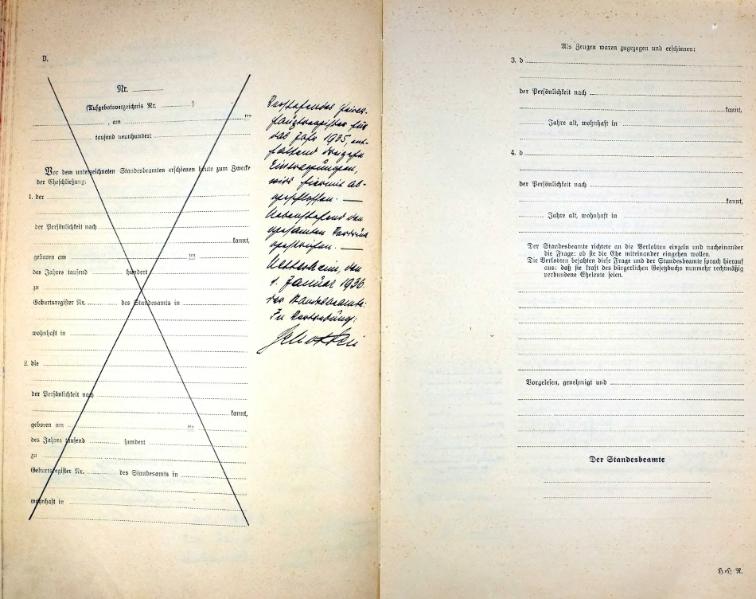 B.
Nr.
(Aufgebotsverzeichnis Nr. )
, am ten
tausend neunhundert
Vor dem unterzeichneten Standesbeamten erschienen heute zum Zwecke
der Eheschließung:
1. der
der Persönlichkeit nach
kannt,
geboren am ten
des Jahres tausend hundert
zu
Geburtsregister Nr. des Standesamts in
wohnhaft in
2. die
der Persönlichkeit nach
kannt,
geboren am ten
des Jahres tausend hundert
zu
Geburtsregister Nr. des Standesamts in
wohnhaft in
Vorstehendes Heirats-
hauptregister für
das Jahr 1935, ent-
haltend
Eintragungen,
wird hiermit ab-
geschlossen. —
Nebenstehend den
gesamten Vordruck
gestrichen. —
den
1. Januar 1936
Der Standesbeamte:
In Vertretung:
Als Zeugen waren zugezogen und erschienen:
3. d
der Persönlichkeit nach
kannt,
Jahre alt, wohnhaft in
4. d
der Persönlichkeit nach
kannt,
Jahre alt, wohnhaft in
Der Standesbeamte richtete an die Verlobten einzeln und nacheinander
die Frage: ob sie die Ehe miteinander eingehen wollen.
Die Verlobten bejahten diese Frage und der Standesbeamte sprach hierauf
aus: daß sie kraft des bürgerlichen Gesetzbuchs nunmehr rechtmäßig
verbundene Eheleute seien.
Vorgelesen, genehmigt und
Der Standesbeamte